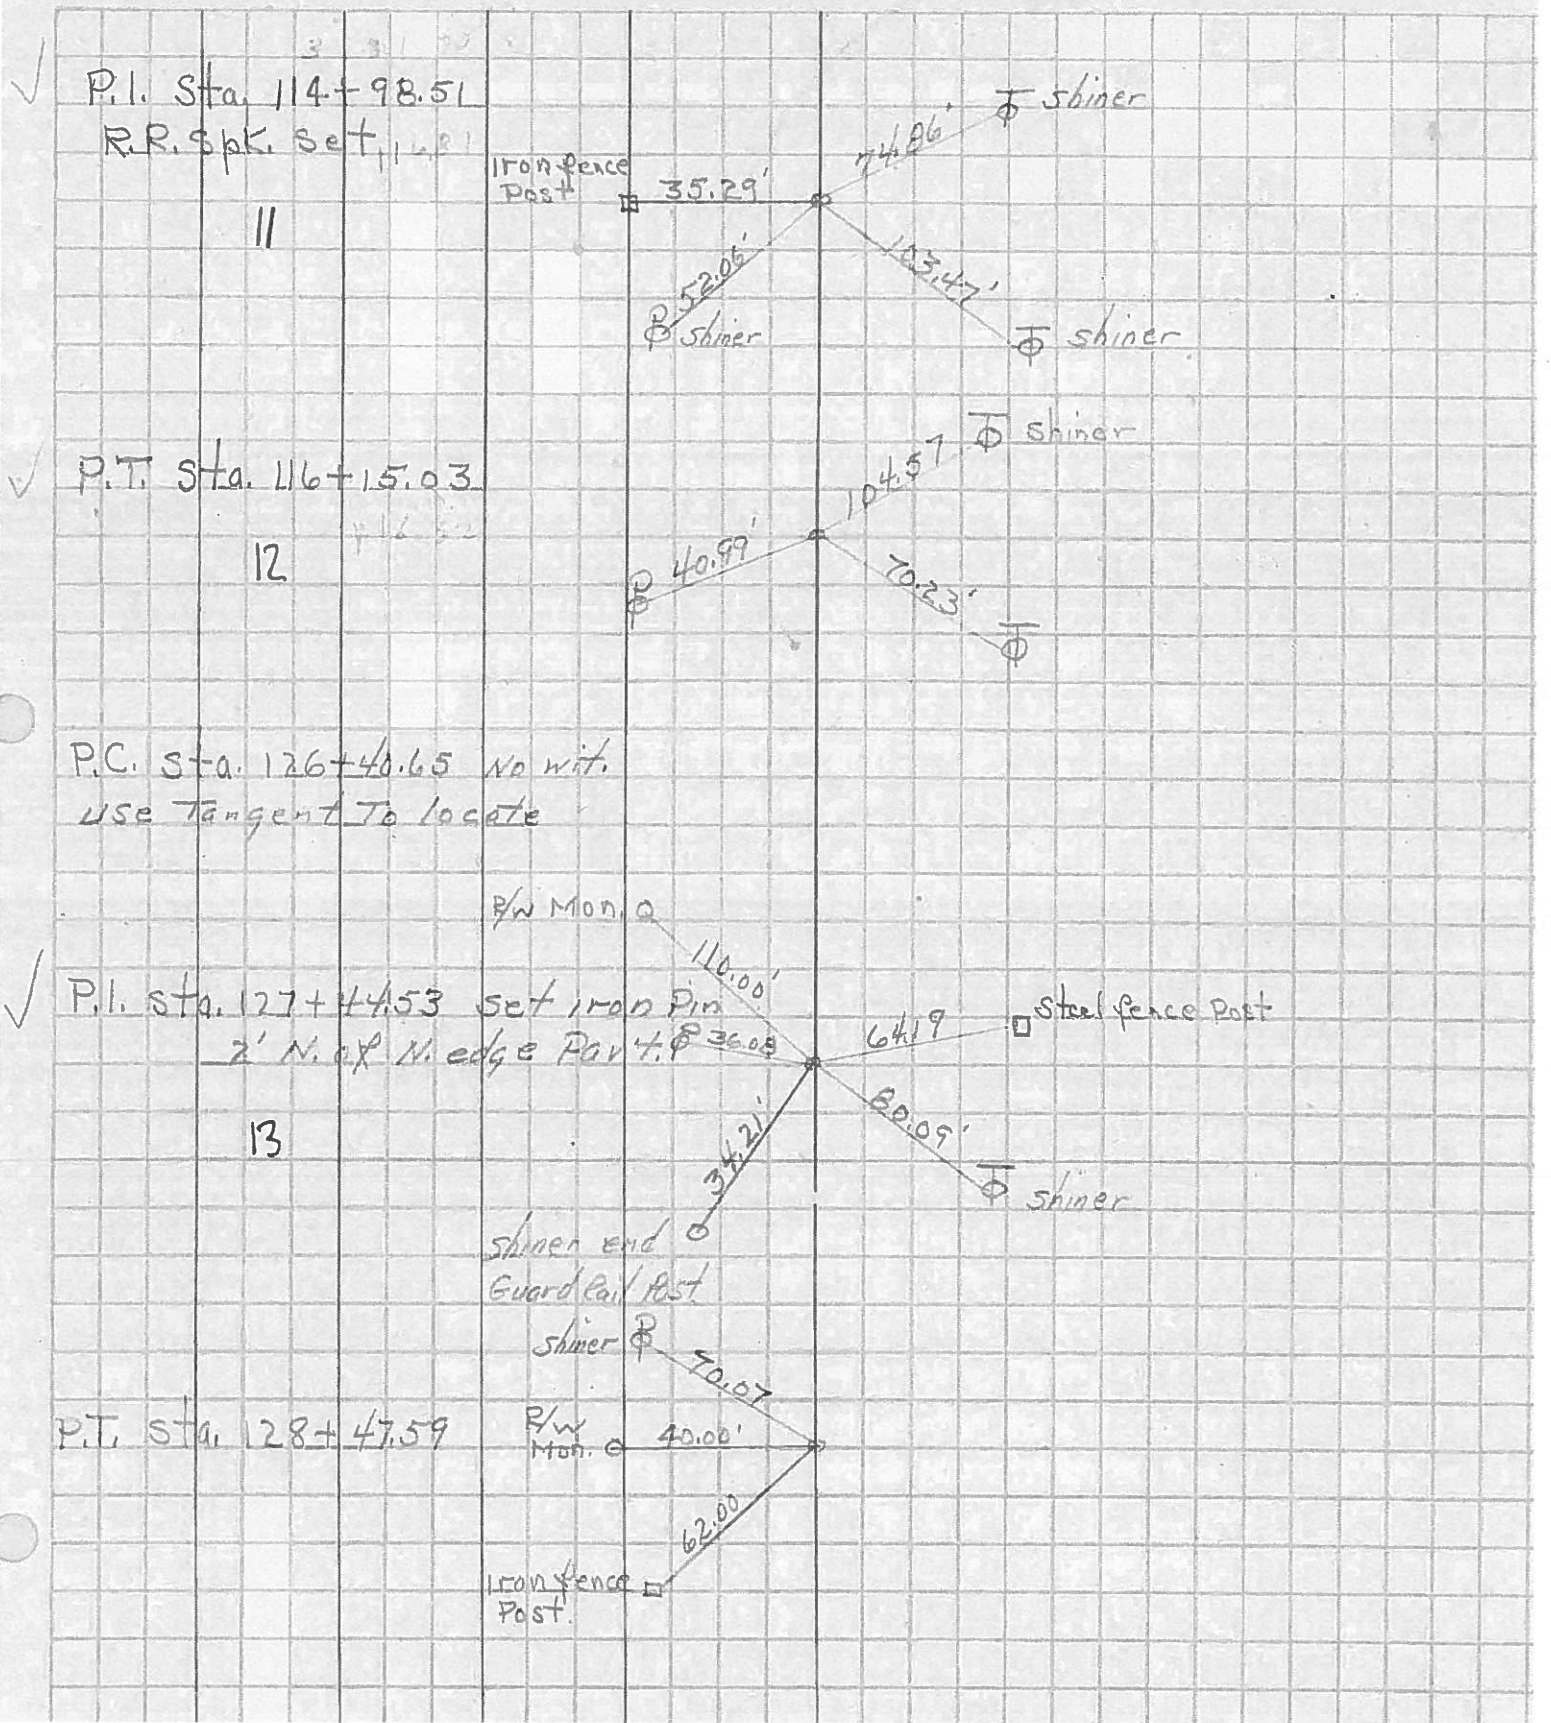 P.I. Sta. 114+98.51
R.R. Spk. Set.
11
Iron fence
Post
35.29'
74.86'
Shiner
52.06'
P
Shiner
103.47'
T
Shiner
P.T. Sta. 116+15.03
12
104.57
T
Shiner
40.99'
P
70.23'
T
P.C. Sta. 126+40.65 No wit.
Use Tangent To locate
R/W Mon.
110.00'
P.I. Sta. 127+44.53 Set iron Pin
2' N. of N. edge Pav't.
P
36.08
64.19
Steel fence Post
13
34.21'
80.09'
T
Shiner
Shiner end
Guard Rail Post
Shiner
P
70.07
P.T. Sta. 128+47.59
R/W
Mon.
40.00'
62.00
Iron fence
Post.